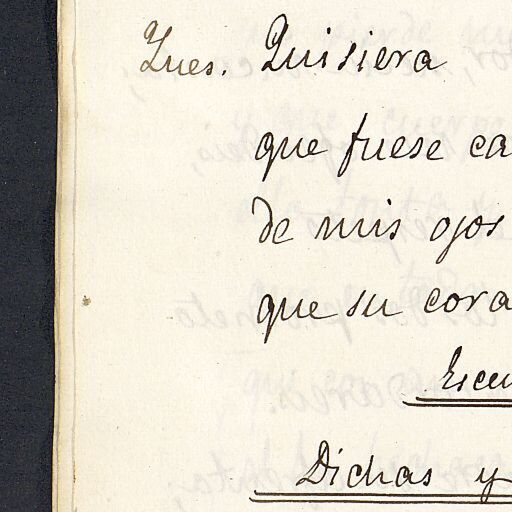 Ynes. Quisiera
que fuese ca
de mis ojos
que su cora
Escen
Dichas y